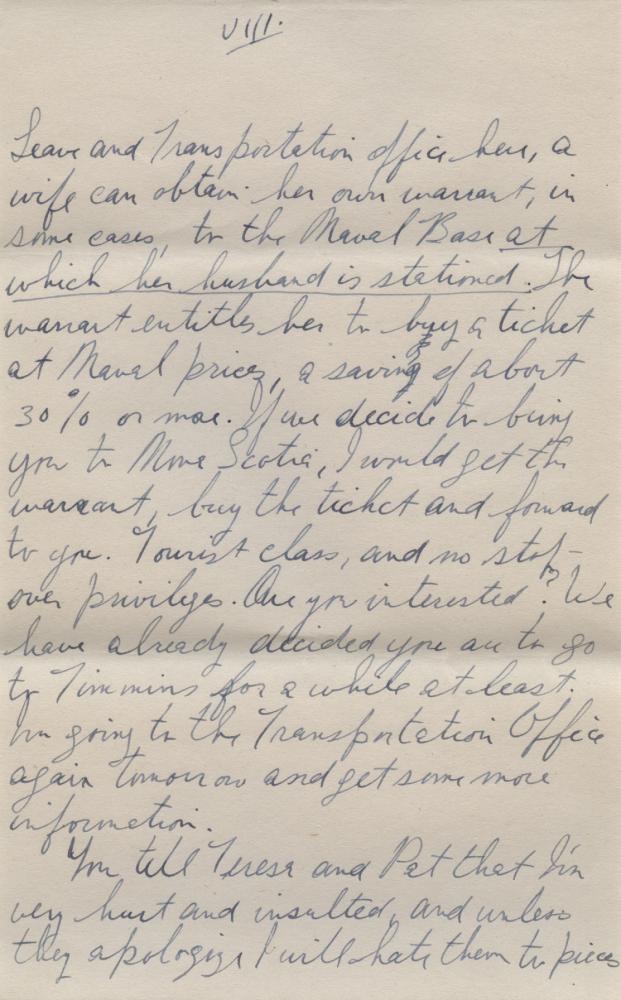 VIII.
Leave and Transportation office here, a
wife can obtain her own warrant, in
some cases, to the Naval Base at
which her husband is stationed. The
warrant entitles her to buy a ticket
at Naval prices, a saving of about
30% or more. If we decide to bring
you to Nova Scotia, I would get the
warrant, buy the ticket and forward
to you. Tourist class, and no stop-
over privileges. Are you interested? We
have already decided you are to go
to Timmins for a while at least.
I'm going to the Transportation Office
again tomorrow and get some more
information.
You tell Teresa and Pat that I'm
very hurt and insulted, and unless
they apologize I will hate them to pieces